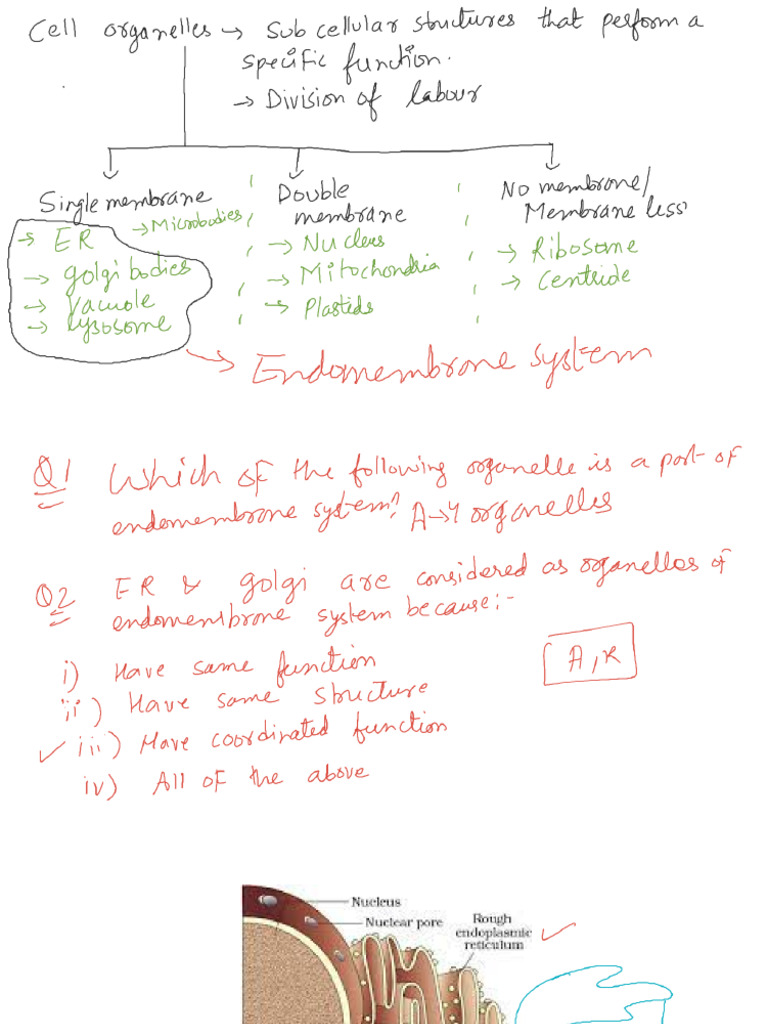 Cell organelles → Sub cellular structures that perform a
specific function.
→ Division of labour
Single membrane
→ Microbodies
→ ER
→ golgi bodies
→ Vacuole
→ lysosome
Double
membrane
→ Nucleus
→ Mitochondria
→ Plastids
No membrane/
Membrane less
→ Ribosome
→ Centriole
→ Endomembrane system
Q1 Which of the following organelle is a part of
endomembrane system? A→4 organelles
Q2 ER & golgi are considered as organelles of
endomembrane system because:-
i) Have same function
ii) Have same structure
✓ iii) Have coordinated function
iv) All of the above
A, R
Nucleus
Nuclear pore
Rough
endoplasmic
reticulum ✓